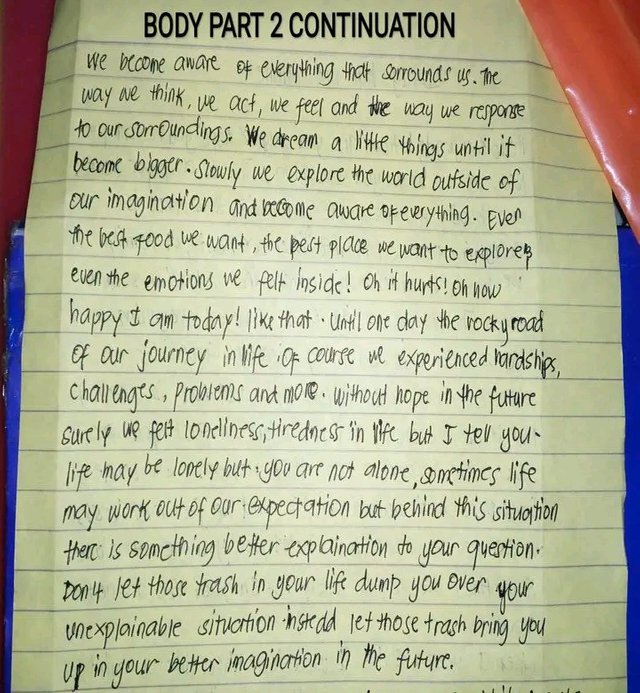 BODY PART 2 CONTINUATION
We become aware of everything that sorrounds us. The
way we think, we act, we feel and the way we response
to our sorroundings. We dream a little things until it
become bigger. Slowly we explore the world outside of
our imagination and become aware of everything. Even
the best food we want, the best place we want to explore,
even the emotions we felt inside! Oh it hurts! Oh how
happy I am today! like that. Until one day the rocky road
of our journey in life. Of course we experienced hardships,
challenges, problems and more. without hope in the future
surely we felt loneliness, tiredness in life but I tell you-
life may be lonely but you are not alone, sometimes life
may work out of our expectation but behind this situation
there is something better explaination to your question.
Don't let those trash in your life dump you over your
unexplainable situation instead let those trash bring you
up in your better imagination in the future.